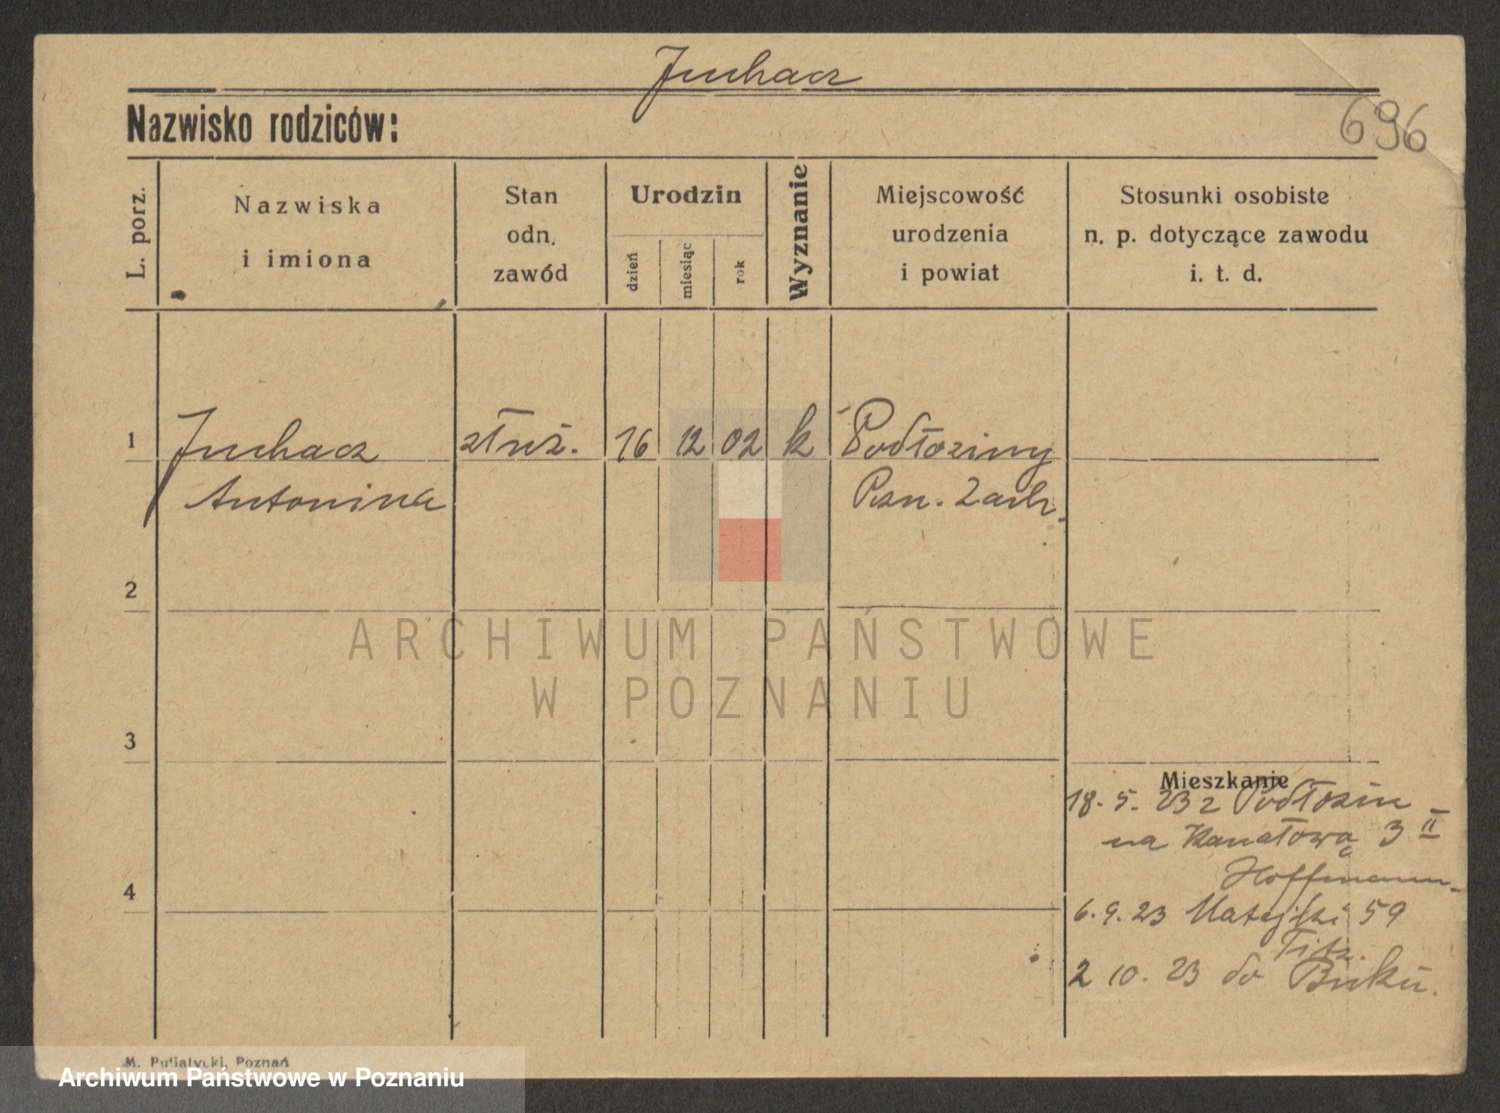 Juchacz
Nazwisko rodziców:
696
L. porz.
Nazwiska
i imiona
Stan
odn.
zawód
Urodzin
dzień
miesiąc
rok
Wyznanie
Miejscowość
urodzenia
i powiat
Stosunki osobiste
n. p. dotyczące zawodu
i. t. d.
1
Juchacz
służ.
16
12
02
k
Podłoziny
Antonina
Pzn. Zach.
2
ARCHIWUM PAŃSTWOWE
W POZNANIU
3
Mieszkanie
18. 5. 23 z Podłozin
na Kanałową 3 II
Hoffmann
4
6. 9. 23 Matejki 59
2 10. 23 do Buku.
M. Putiatycki, Poznań
Archiwum Państwowe w Poznaniu